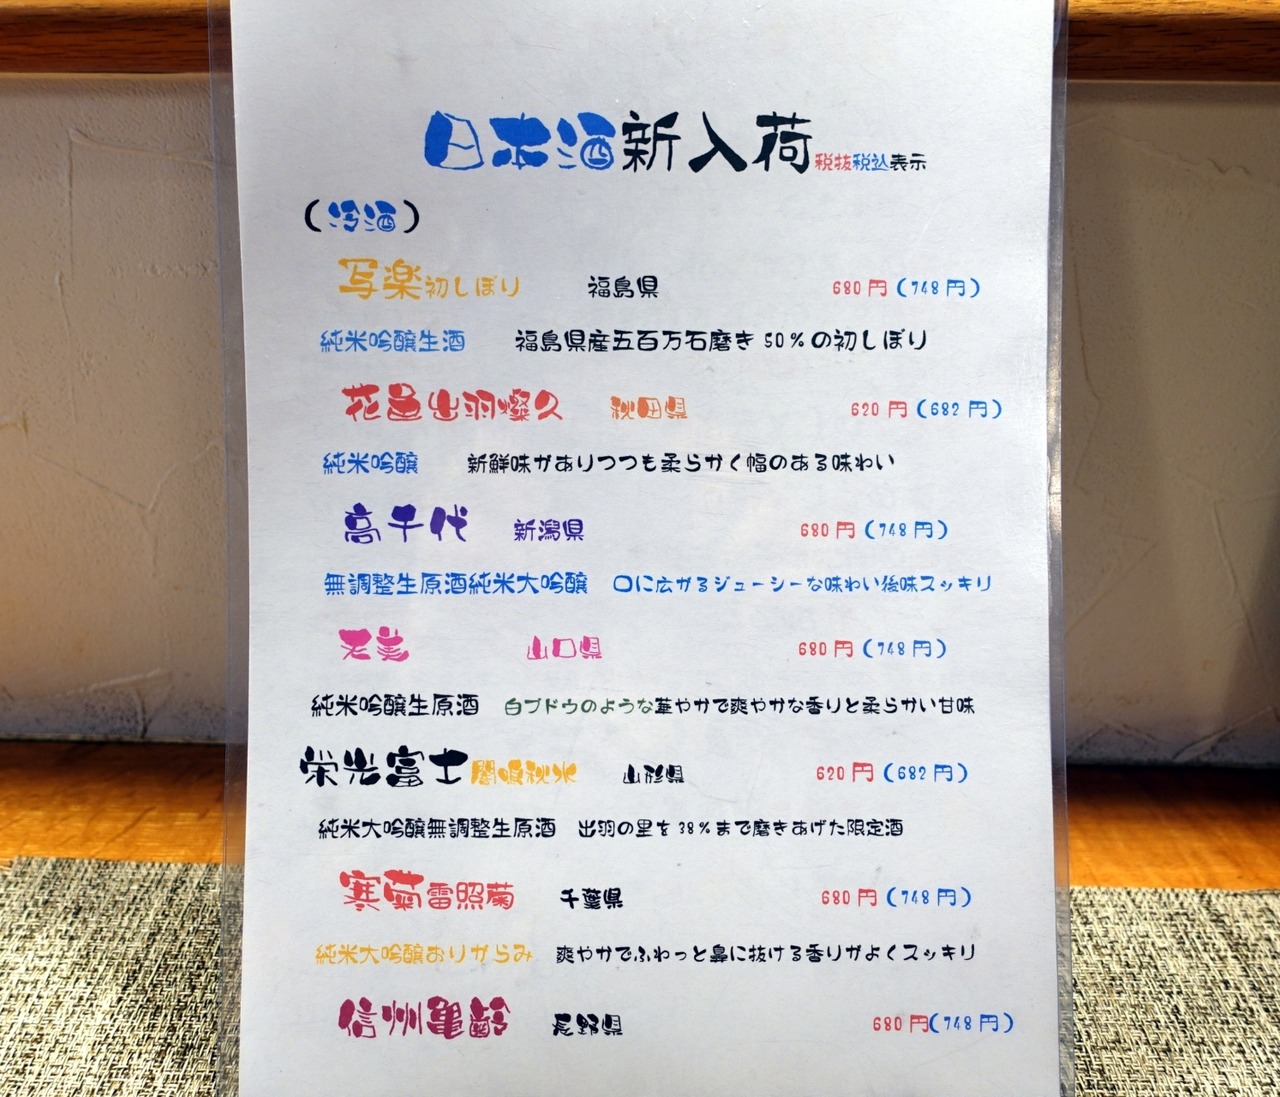 日本酒新入荷税抜税込表示
(冷酒)
写楽初しぼり 福島県 680円(748円)
純米吟醸生酒 福島県産五百万石磨き50%の初しぼり
花邑出羽燦々 秋田県 620円(682円)
純米吟醸 新鮮味がありつつも柔らかく幅のある味わい
高千代 新潟県 680円(748円)
無調整生原酒純米大吟醸 口に広がるジューシーな味わい後味スッキリ
天美 山口県 680円(748円)
純米吟醸生原酒 白ブドウのような華やかで爽やかな香りと柔らかい甘味
栄光富士闇鳴秋水 山形県 620円(682円)
純米大吟醸無調整生原酒 出羽の里を38%まで磨きあげた限定酒
寒菊雷照菊 千葉県 680円(748円)
純米大吟醸おりがらみ 爽やかでふわっと鼻に抜ける香りがよくスッキリ
信州亀齢 長野県 680円(748円)